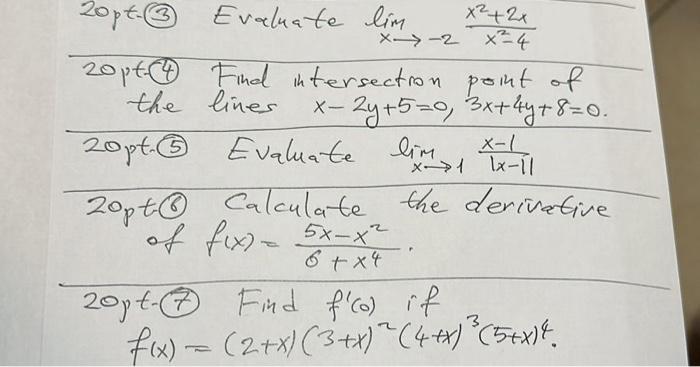 20pt.③ Evaluate lim x→-2 x²+2x / x²-4
20pt.④ Find intersection point of
the lines x-2y+5=0, 3x+4y+8=0.
20pt.⑤ Evaluate lim x→1 x-1 / |x-1|
20pt⑥ Calculate the derivative
of f(x) = 5x-x² / 6+x⁴ .
20pt.⑦ Find f'(0) if
f(x) = (2+x)(3+x)²(4+x)³(5+x)⁴.